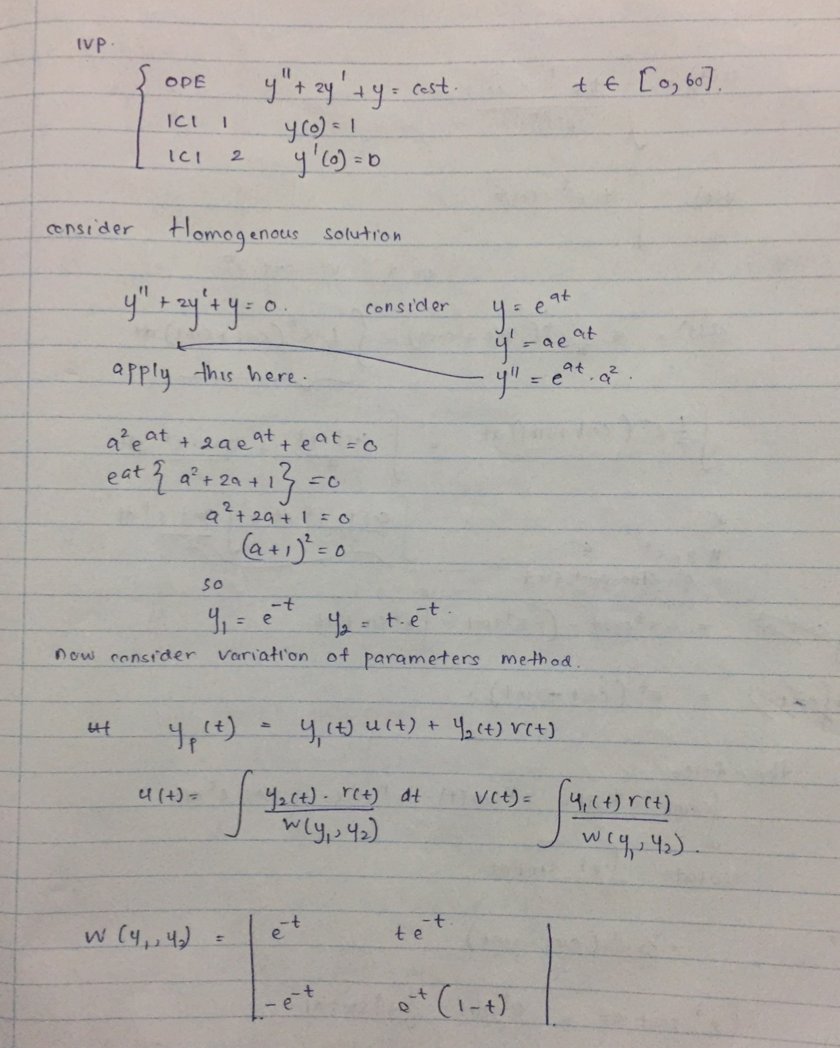 IVP.
ODE y'' + 2y' + y = cost. t ∈ [0, 60].
ICI 1 y(0) = 1
ICI 2 y'(0) = 0
consider Homogenous solution
y'' + 2y' + y = 0. consider y = e^{at}
y' = ae^{at}
apply this here. y'' = e^{at} . a^2.
a^2e^{at} + 2ae^{at} + e^{at} = 0
eat { a^2 + 2a + 1 } = 0
a^2 + 2a + 1 = 0
(a + 1)^2 = 0
so
y_1 = e^{-t} y_2 = t.e^{-t}.
now consider variation of parameters method.
y_p(t) = y_1(t) u(t) + y_2(t) v(t)
u(t) = ∫ \frac{y_2(t) . r(t)}{W(y_1, y_2)} dt v(t) = ∫ \frac{y_1(t) r(t)}{W(y_1, y_2)}.
W(y_1, y_2) = | e^{-t} te^{-t}. |
| -e^{-t} e^{-t}(1-t) |